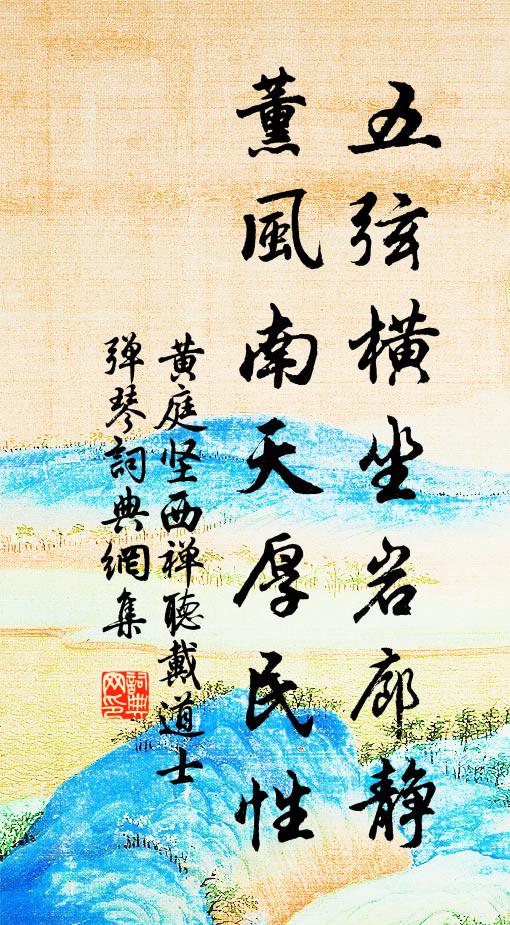 五弦橫坐岩廊靜
薰風南天厚民性
黄庭坚西禅聽戴道士
弹琴詞典網集
詞典網印